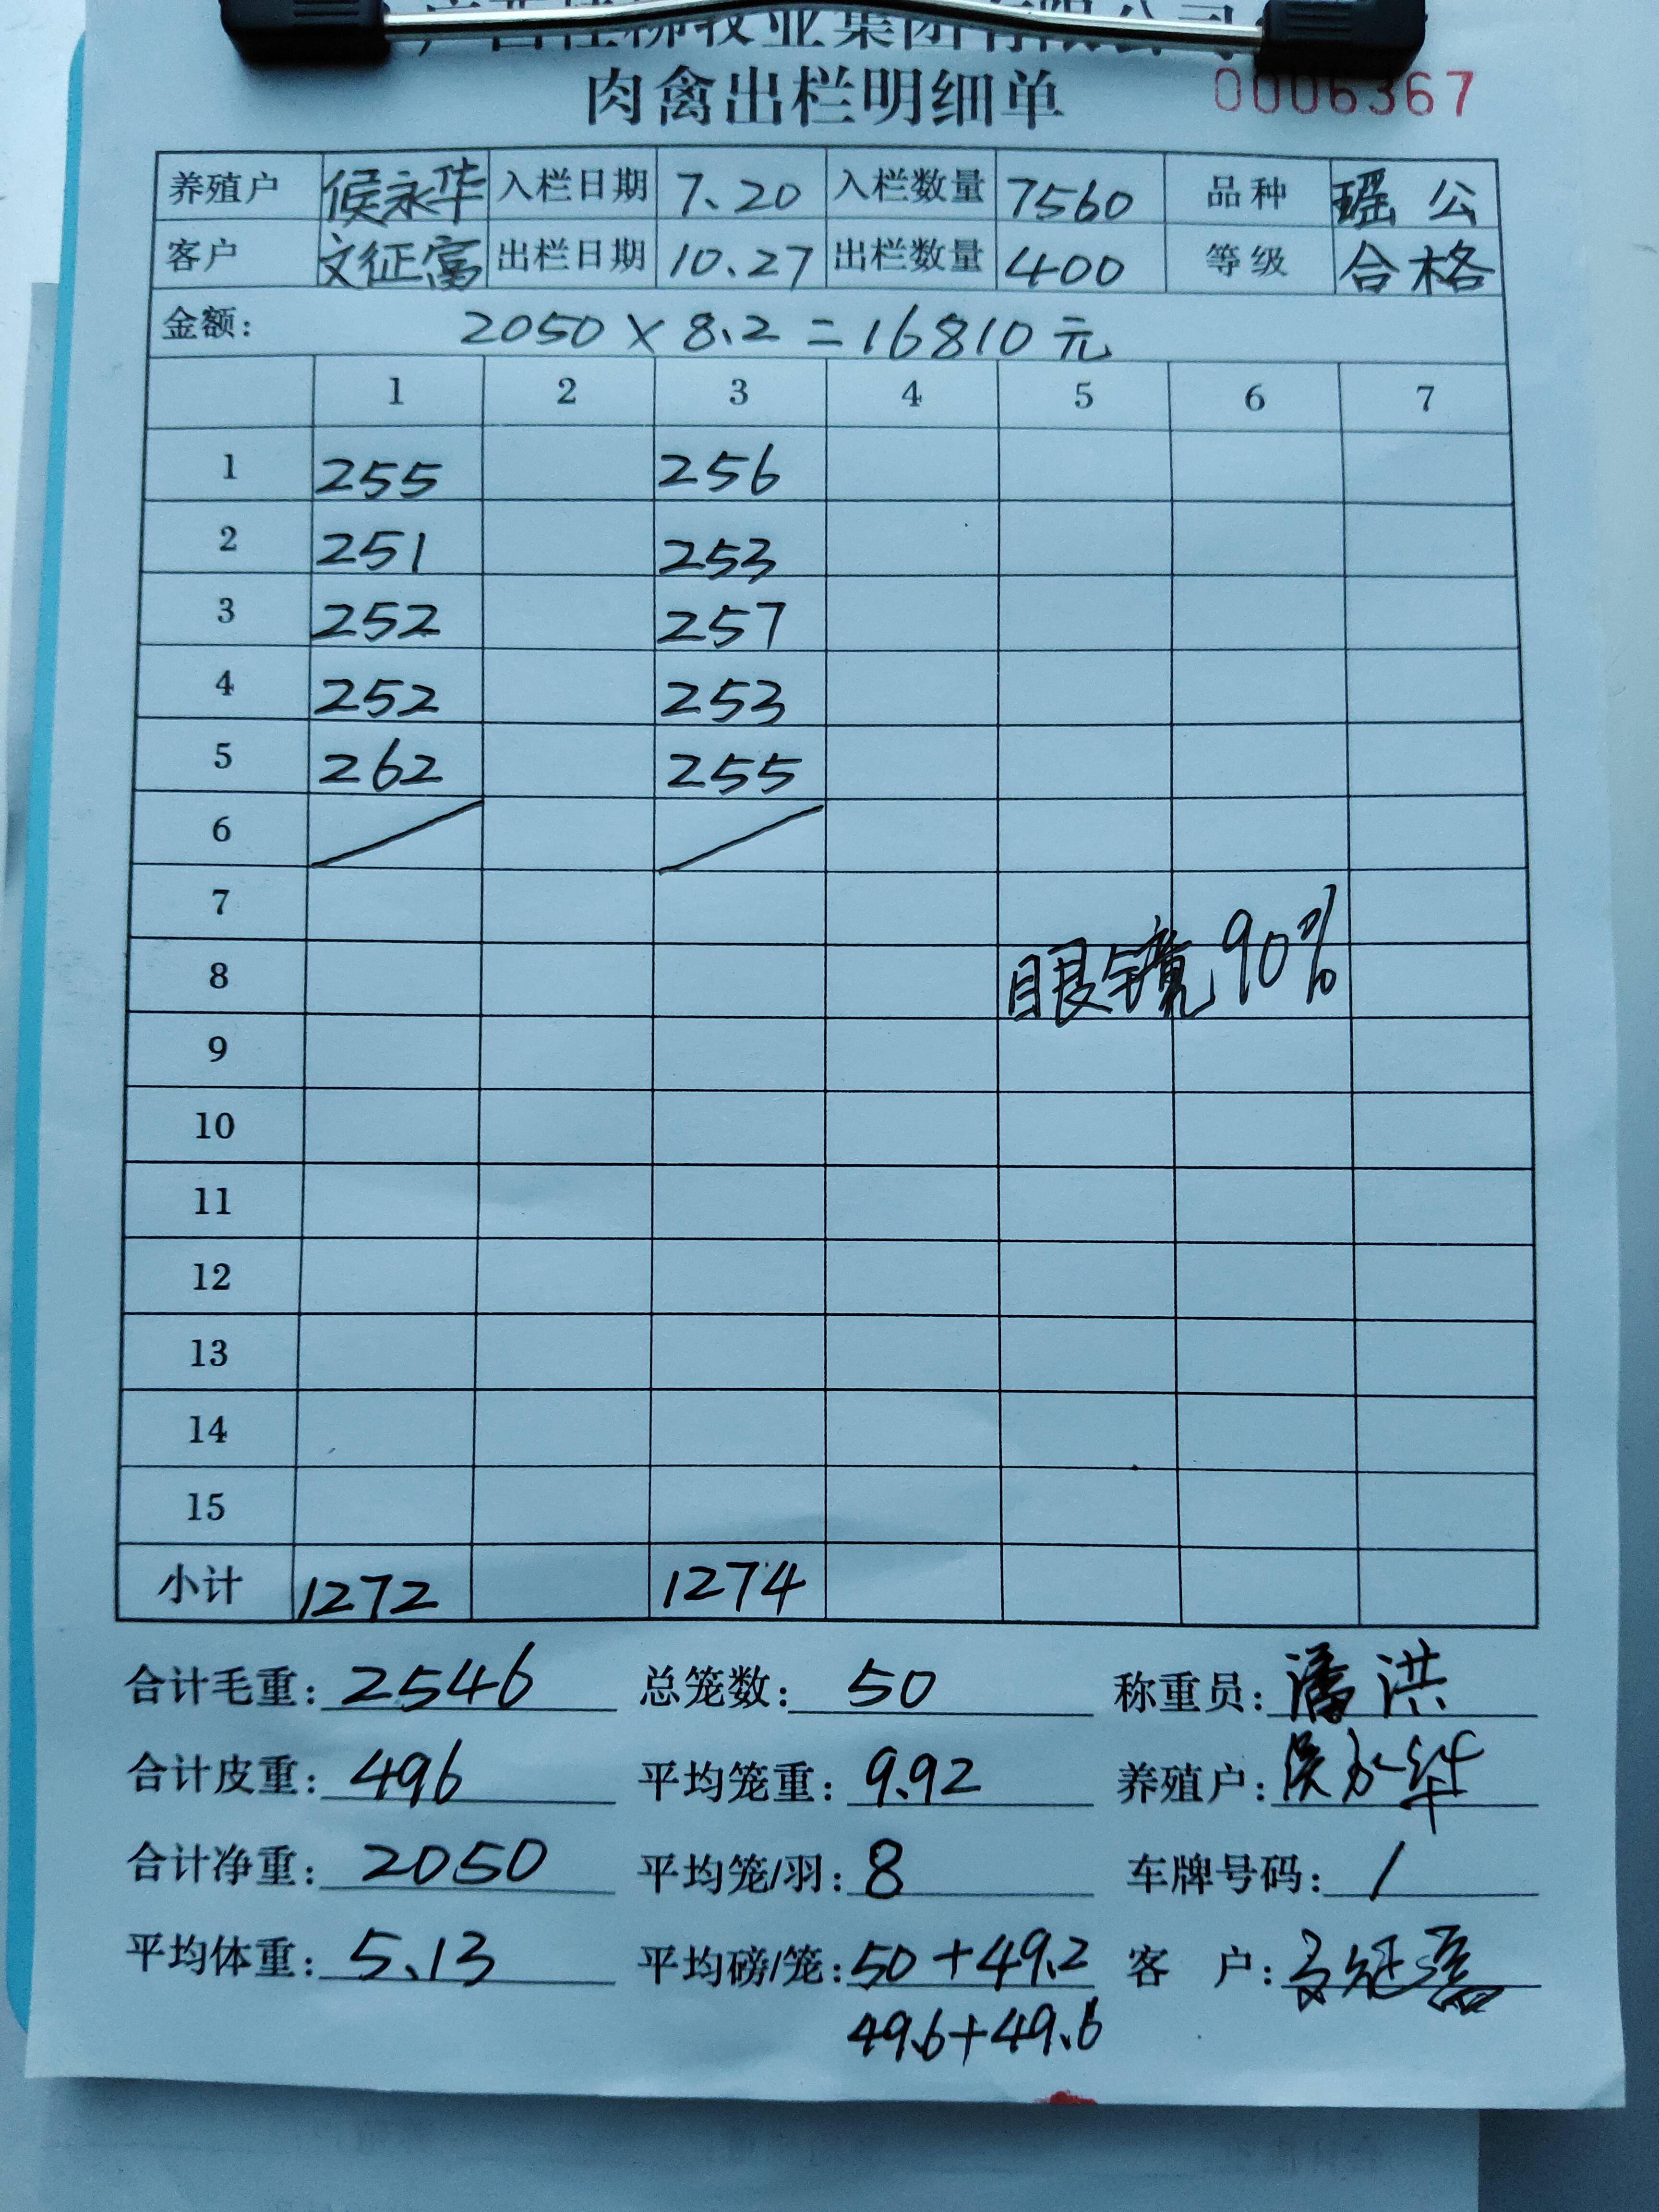 广西桂柳牧业集团有限公司
肉禽出栏明细单 0006367
养殖户 侯永华 入栏日期 7.20 入栏数量 7560 品种 瑶公
客户 文征富 出栏日期 10.27 出栏数量 400 等级 合格
金额: 2050×8.2=16810元
1 2 3 4 5 6 7
1 255 256
2 251 253
3 252 257
4 252 253
5 262 255
6
7
眼镜90%
8
9
10
11
12
13
14
15
小计 1272 1274
合计毛重: 2546 总笼数: 50 称重员: 潘洪
合计皮重: 496 平均笼重: 9.92 养殖户: 侯永华
合计净重: 2050 平均笼/羽: 8 车牌号码: /
平均体重: 5.13 平均磅/笼: 50+49.2 客户:
49.6+49.6